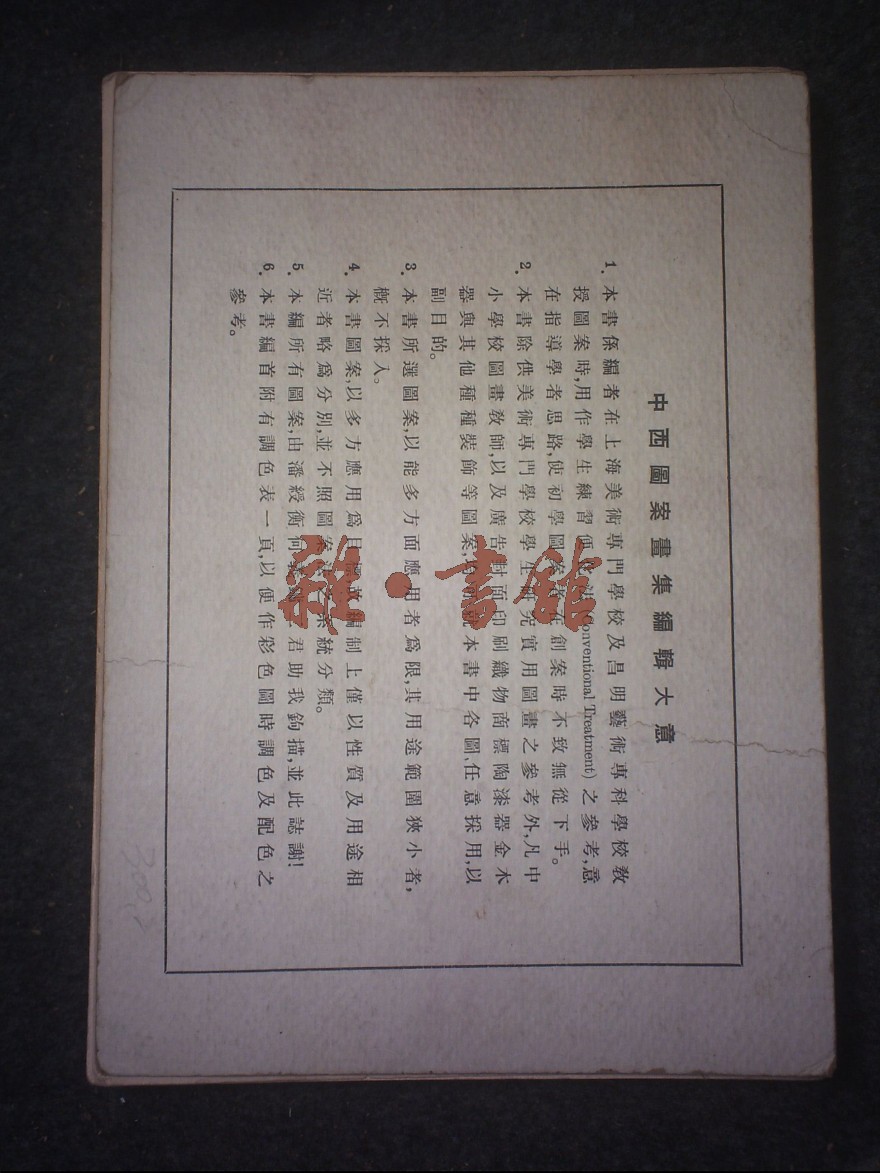 中西圖案畫集編輯大意
1. 本書係編者在上海美術專門學校及昌明藝術專科學校教
授圖案時,用作學生練習便化法(Conventional Treatment)之參考,意
在指導學者思路,使初學圖案者在創案時不致無從下手。
2. 本書除供美術專門學校學生研究實用圖畫之參考外,凡中
小學校圖畫教師,以及廣告封面印刷織物商標陶漆器金木
器與其他種種裝飾等圖案,本書中各圖,任意採用,以
副目的。
3. 本書所選圖案,以能多方面應用者爲限,其用途範圍狹小者,
概不採入。
4. 本書圖案,以多方應用爲目編制上僅以性質及用途相
近者略爲分別,並不照圖案系統分類。
5. 本編所有圖案,由潘綬衡何君助我鉤描,並此誌謝!
6. 本書編首附有調色表一頁,以便作彩色圖時調色及配色之
參考。
雜·書館